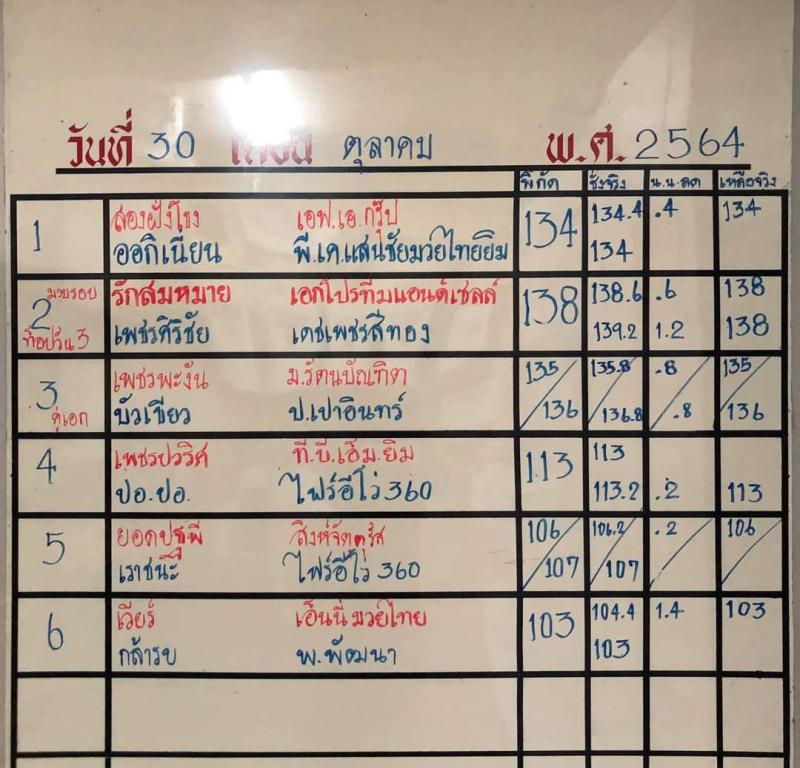 วันที่ 30 เดือน ตุลาคม พ.ศ. 2564
พิกัด ชั่งจริง น.น.ลด เหลือจริง
1 สองฝั่งโขง เอฟ.เอ.กรุ๊ป 134 134.4 .4 134
ออกิเนียน พี.เค.แสนชัยมวยไทยยิม 134
2 มวยรอบ รักสมหมาย เอกโปรทีมแอนด์เซลล์ 138 138.6 .6 138
ท็อปวัน3 เพชรศิริชัย เดชเพชรสีทอง 139.2 1.2 138
3 เพชรพะงัน ม.รัตนบัณฑิต 135 135.8 .8 135
คู่เอก บัวเขียว ป.เปาอินทร์ 136 136.8 .8 136
4 เพชรปวริศ ที.บี.เอ็ม.ยิม 113 113
ปอ.ปอ. ไฟร์อีโว่ 360 113.2 .2 113
5 ยอดปฐพี สิงห์จัตุรัส 106 106.2 .2 106
เราชนะ ไฟร์อีโว่ 360 107 107
6 เวียร์ เอ็นนี่มวยไทย 103 104.4 1.4 103
กล้ารบ พ.พัฒนา 103